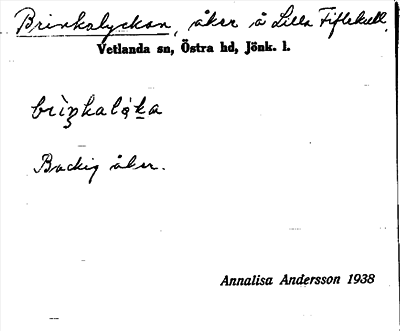 Brinkalyckan, åker å Lilla Fiflekull,
Vetlanda sn, Östra hd, Jönk. l.
Backig åker.
Annalisa Andersson 1938